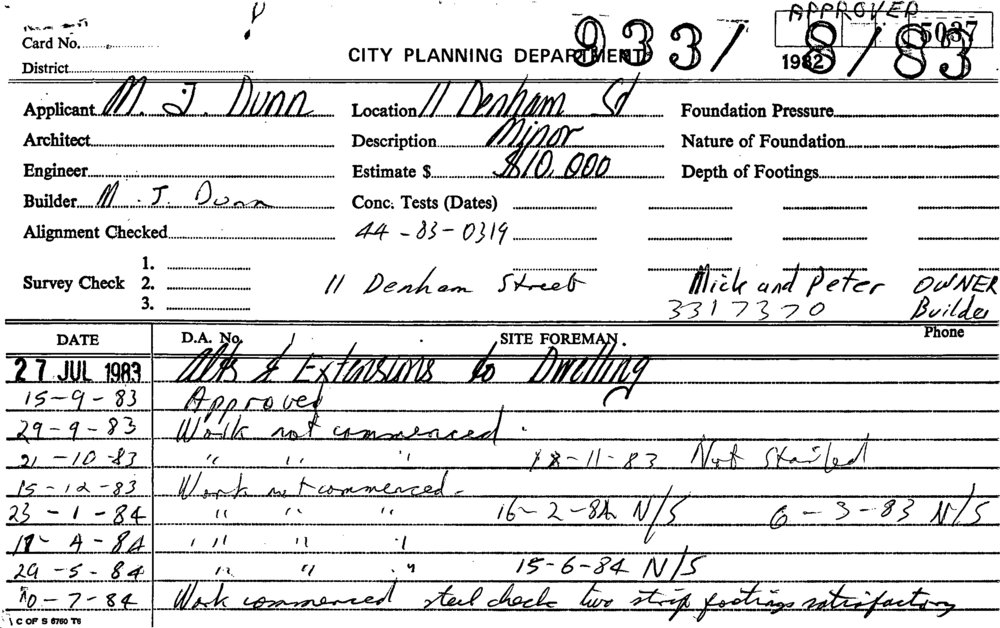 APPROVED
Card No.
5037
CITY PLANNING DEPARTMENT
9337/
8/83
1982
District
Applicant M. J. Dunn Location 11 Denham St Foundation Pressure
Architect Description Minor Nature of Foundation
Engineer Estimate $ $10,000 Depth of Footings
Builder M. J. Dunn Conc. Tests (Dates)
Alignment Checked 44-83-0319
1.
Survey Check 2. 11 Denham Street Mick and Peter OWNER
3. 3317370 Builder
DATE D.A. No. SITE FOREMAN. Phone
27 JUL 1983 Alts & Extensions to Dwelling
15-9-83 Approved
29-9-83 Work not commenced.
21-10-83 " " " 18-11-83 Not Started
15-12-83 Work not commenced.
23-1-84 " " " 16-2-84 N/S 6-3-83 N/S
-4-84 " " "
29-5-84 " " " 15-6-84 N/S
-7-84 Work commenced steel check two strip footings satisfactory
C OF S 6760 T6